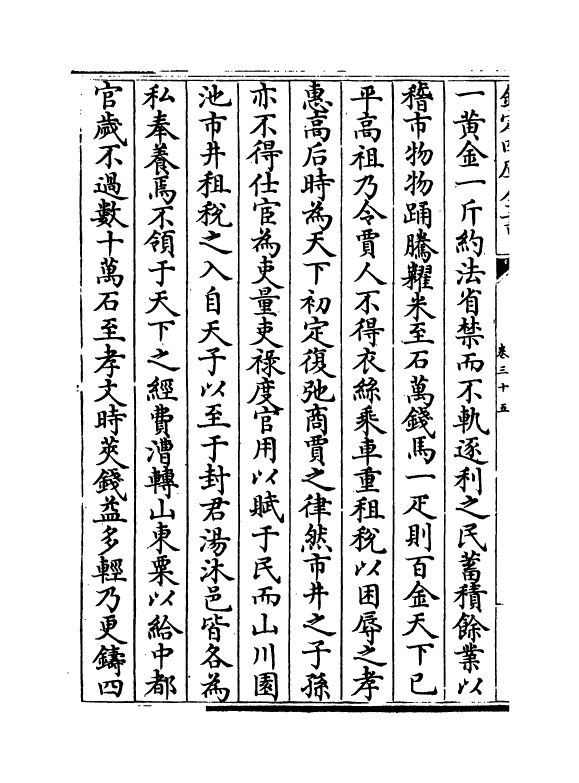 一黄金一斤約法省禁而不軌逐利之民蓄積餘業以
稽市物物踊騰糶米至石萬錢馬一疋則百金天下已
平高祖乃令賈人不得衣絲乘車重租稅以困辱之孝
惠高后時為天下初定復弛商賈之律然市井之子孫
亦不得仕宦為吏量吏祿度官用以賦于民而山川園
池市井租稅之入自天子以至于封君湯沐邑皆各為
私奉養焉不領于天下之經費漕轉山東粟以給中都
官歲不過數十萬石至孝文時莢錢益多輕乃更鑄四
卷三十五